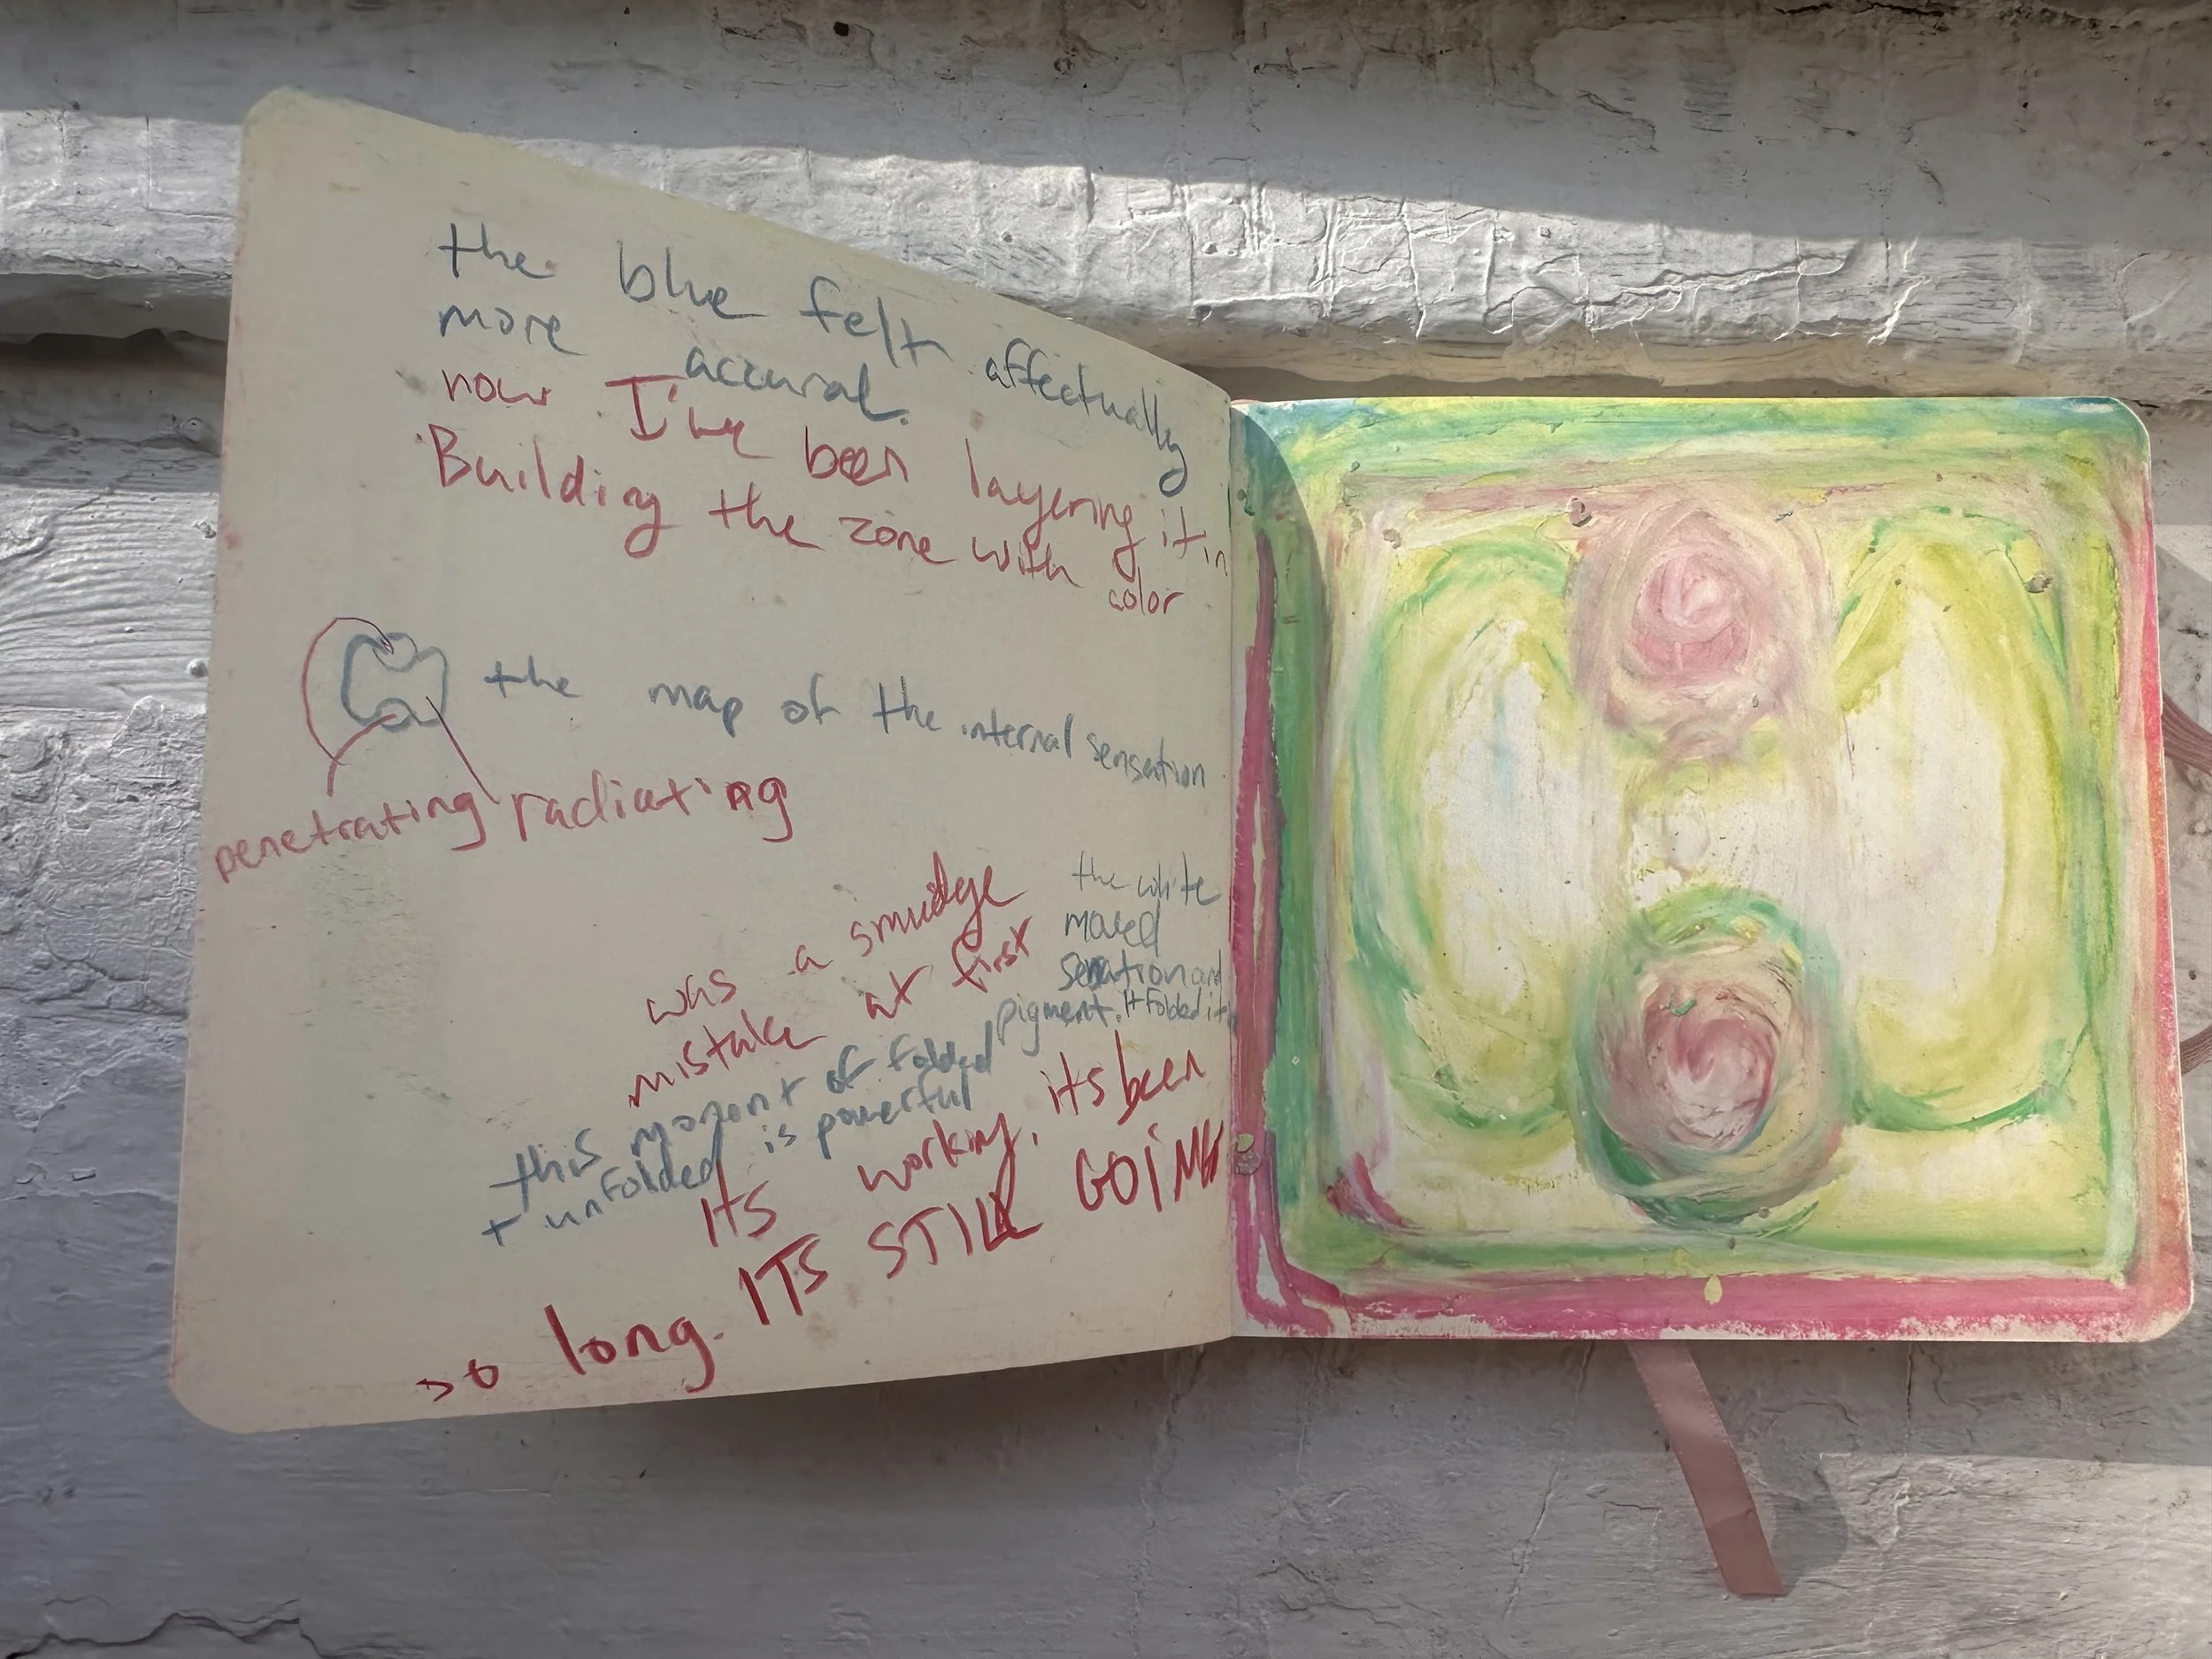 the blue felt affectually
more accurat.
now I've been layering it in
Building the zone with
color
the map of the internal sensation
penetrating radiating
was a smudge
mistake at first
the white
moved
sensation and
pigment. It folded it
this moment of folded
+ unfolded is powerful
Its working, its been
so long. ITS STILL GOING